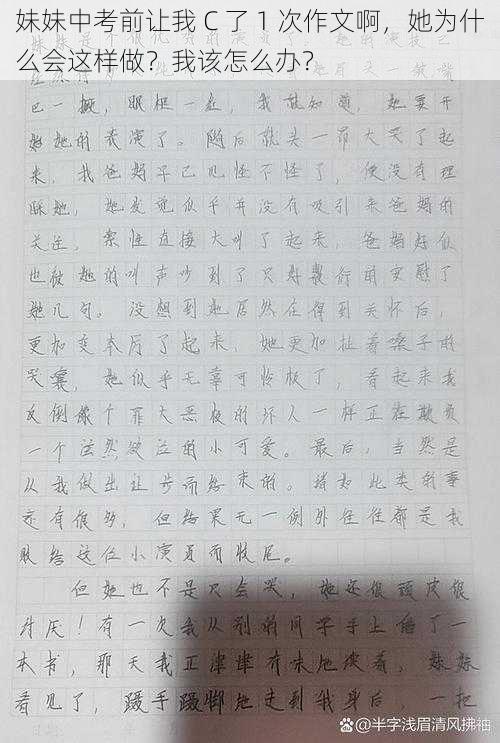 妹妹中考前让我 C 了 1 次作文啊，她为什
么会这样做？我该怎么办？
巴一撅，眼眶一红，我就知道，她要开
始她的表演了。随后就头一昂大哭了起
来，我爸妈早已见怪不怪了，便没有理
睬她，她发觉似乎并没有吸引来爸妈的
关注，索性直接大叫了起来，爸妈好似
也被她的叫声吵到了只好敷衍的安慰了
她几句。没想到她居然在得到关怀后，
更加变本厉了起来，她更加扯着嗓子的
哭嚷，她似乎无辜可怜极了，看起来我
反倒像个罪大恶极的坏人一样正在欺负
一个泫然欲泣的小可爱。最后，当然是
从我做出让步而结束的。诸如此类的事
还有很多，但结果无一例外往往都是我
服给这位小演员而收尾。
但她也不是只会哭，她还很顽皮很
讨厌！有一次我从别的同学手上借了一
本书，那天我正津津有味地读着，妹妹
看见了，蹑手蹑脚地走到我身后，一把
@半字浅眉清风拂袖